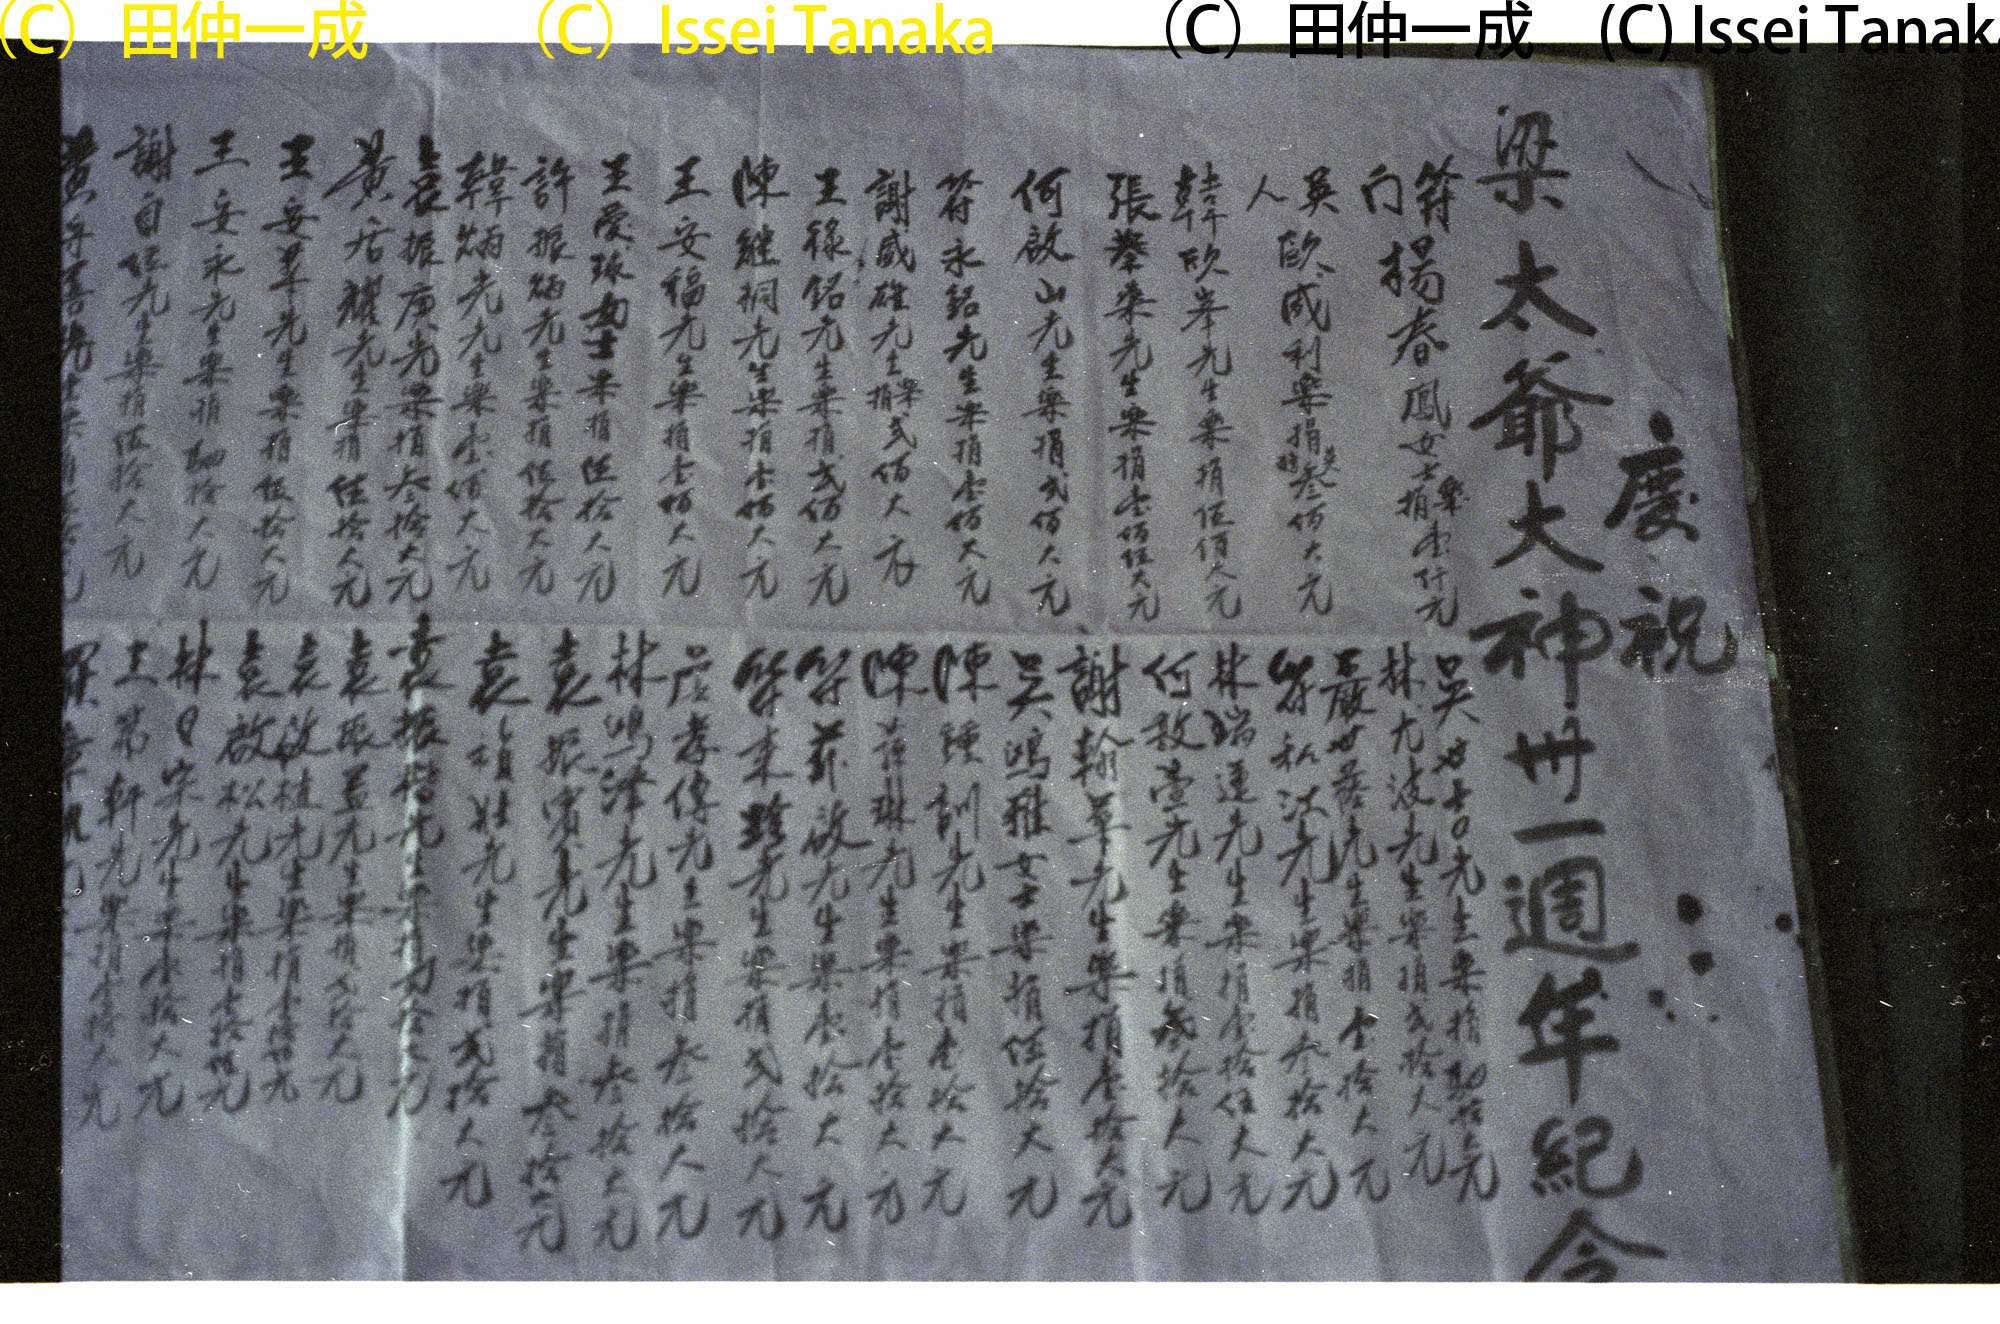 (C) 田仲一成 (C) Issei Tanaka (C) 田仲一成 (C) Issei Tanaka
慶祝
梁太爺大神卅一週年紀念
符門楊春鳳女士樂捐壹仟元
吳歐威利樂捐叁佰大元
韓欧峯先生樂捐伍佰大元
張 來先生樂捐壹佰伍大元
何啟山先生樂捐弍佰大元
符永銘先生樂捐壹佰大元
謝威雄先生樂捐弍佰大元
王祿銘先生樂捐弍佰大元
陳繼桐先生樂捐壹佰大元
王安福先生樂捐壹佰大元
王愛珠女士樂捐伍拾大元
許振炳先生樂捐伍拾大元
韓炳光先生樂壹佰大元
袁振庚先樂捐叁拾大元
黃居耀先生樂捐伍拾大元
王安華先生樂捐伍拾大元
王安永先生樂捐 拾大元
謝自伍先生樂捐伍拾大元
黃
吳 先生樂捐 拾元
林尤波先生樂捐弍拾大元
嚴世 先生樂捐壹拾大元
符私江先生樂捐叁拾大元
林瑞蓮先生樂捐壹拾伍大元
何敉壹先生樂捐叁拾大元
謝翰華先生樂捐壹拾大元
吳鴻雅女士樂捐伍拾大元
陳鍾訓先生樂捐壹拾大元
陳 琳先生樂捐壹拾大元
符 啟先生樂壹拾大元
符 先生樂捐弍拾大元
孝傳先生樂捐叁拾大元
林鴻澤先生樂捐叁拾大元
袁振賓先生樂捐叁拾大元
袁 先生樂捐弍拾大元
袁振 先生樂捐 大元
袁振益先生樂捐弍拾大元
袁啟植先生樂捐壹拾伍元
袁啟松先生樂捐壹拾伍元
林日宗先生樂壹拾大元
王 軒先生樂捐壹拾大元